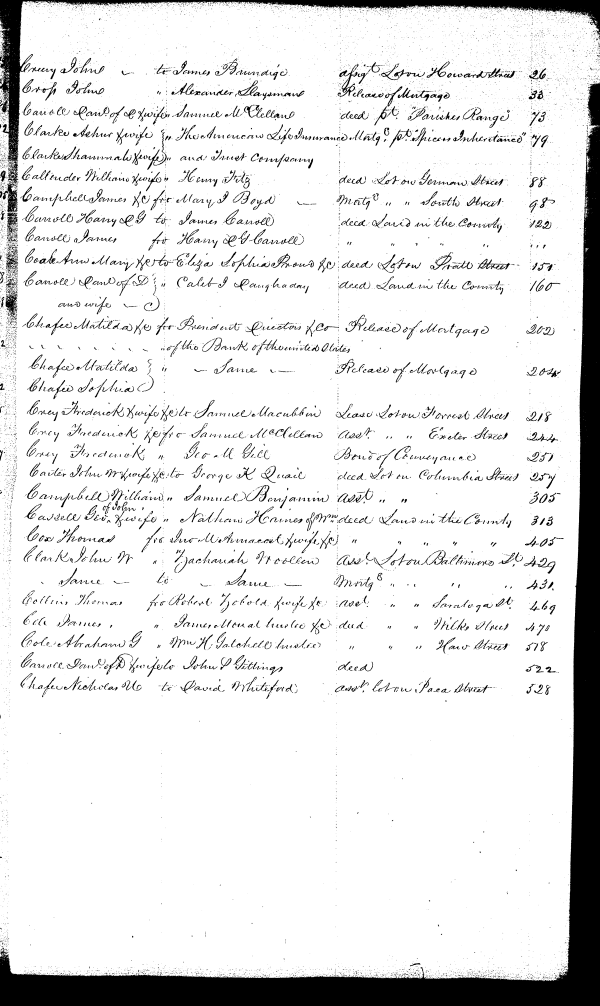 Creery John — to James Brundige assigt Lot on Howard Street 26
Cross John " Alexander Slaysman Release of Mortgage 33
Carroll Danl of D &wife " Samuel McClellan deed pt. "Parishes Range" 73
Clarke Ashur &wife " The American Life Insurance Mortge. pt. "Spicers Inheritance" 79
Clarke Shammah &wife " and Trust Company
Callender William &wife " Henry Fitz deed Lot on German Street 88
Campbell James &c fro Mary I Boyd — Mortge " " South Street 98
Carroll Harry D G to James Carroll deed Land in the County 122
Carroll James fro Harry D G Carroll " " " " " "
Coale Ann Mary &c to Eliza Sophia Stroud &c deed Lot on Pratt Street 151
Carroll Danl of D " Caleb D deed Land in the County 160
and wife —
Chafee Matilda &c fro President Directors &Co Release of Mortgage 202
" " " " " " of the Bank of the United States
Chafee Matilda " — Same — Release of Mortgage 204
Chafee Sophia
Crey Frederick &wife &c to Samuel Macubbin Lease Lot on Forrest Street 218
Crey Frederick &c fro Samuel McClellan asst. " " Exeter Street 244
Crey Frederick " Geo M Gill Bond of Conveyance 251
Carter John W &wife &c to George K Quail deed Lot on Columbia Street 257
Campbell William " Samuel Benjamin asst " " 305
Cassell Geo. of John &wife " Nathan Haines of Wm deed Land in the County 313
Cox Thomas fro Jno M &wife &c " " " " " 405
Clark John W " Zachariah Woollen asst Lot on Baltimore St. 429
" Same — to — Same — Mortge " " " " 431
Collins Thomas fro Robert &wife &c asst. " " Saratoga St. 469
Cole James " James trustee &c deed " " Wilks Street 471
Cole Abraham G " Wm H Gatchell trustee " " " Haw Street 518
Carroll Danl of D &wife to John S Gittings deed 522
Chafee Nicholas to David Whiteford asst. lot on Paca Street 528